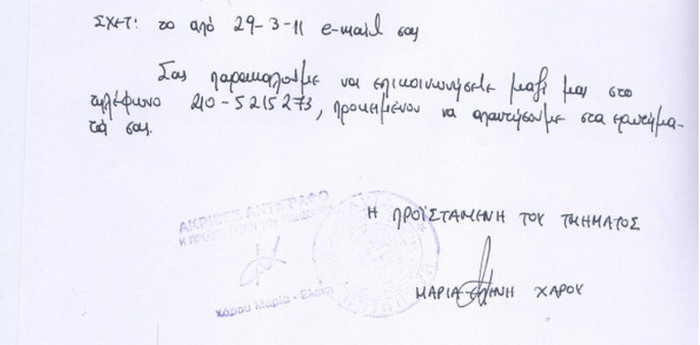 ΣΧΕΤ: το από 29-3-11 e-mail σας
Σας παρακαλούμε να επικοινωνήσετε μαζί μας στο
τηλέφωνο 210-5215273, προκειμένου να απαντήσουμε στα ερωτήμα-
τά σας.
Η ΠΡΟΪΣΤΑΜΕΝΗ ΤΟΥ ΤΜΗΜΑΤΟΣ
ΜΑΡΙΑ-ΕΛΕΝΗ ΧΑΡΟΥ
ΑΚΡΙΒΕΣ ΑΝΤΙΓΡΑΦΟ
Χάρου Μαρία - Ελένη